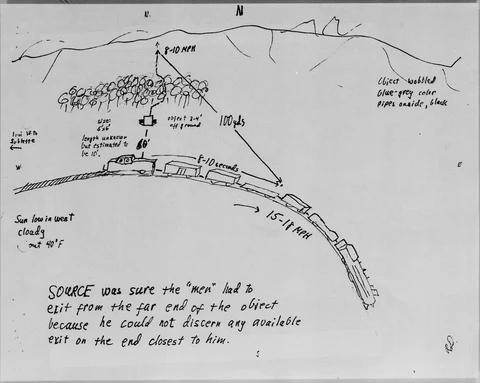 N
N
8-10 MPH
Object wobbled
Blue-grey color
pipes on side, black
size:
6'x6'
length unknown
but estimated to
be 10'.
object 2-4'
off ground
100 yds
60'
8-10 seconds
W
E
15-18 MPH
Sun low in west
cloudy
out 40°F
SOURCE was sure the "men" had to
exit from the far end of the object
because he could not discern any available
exit on the end closest to him.